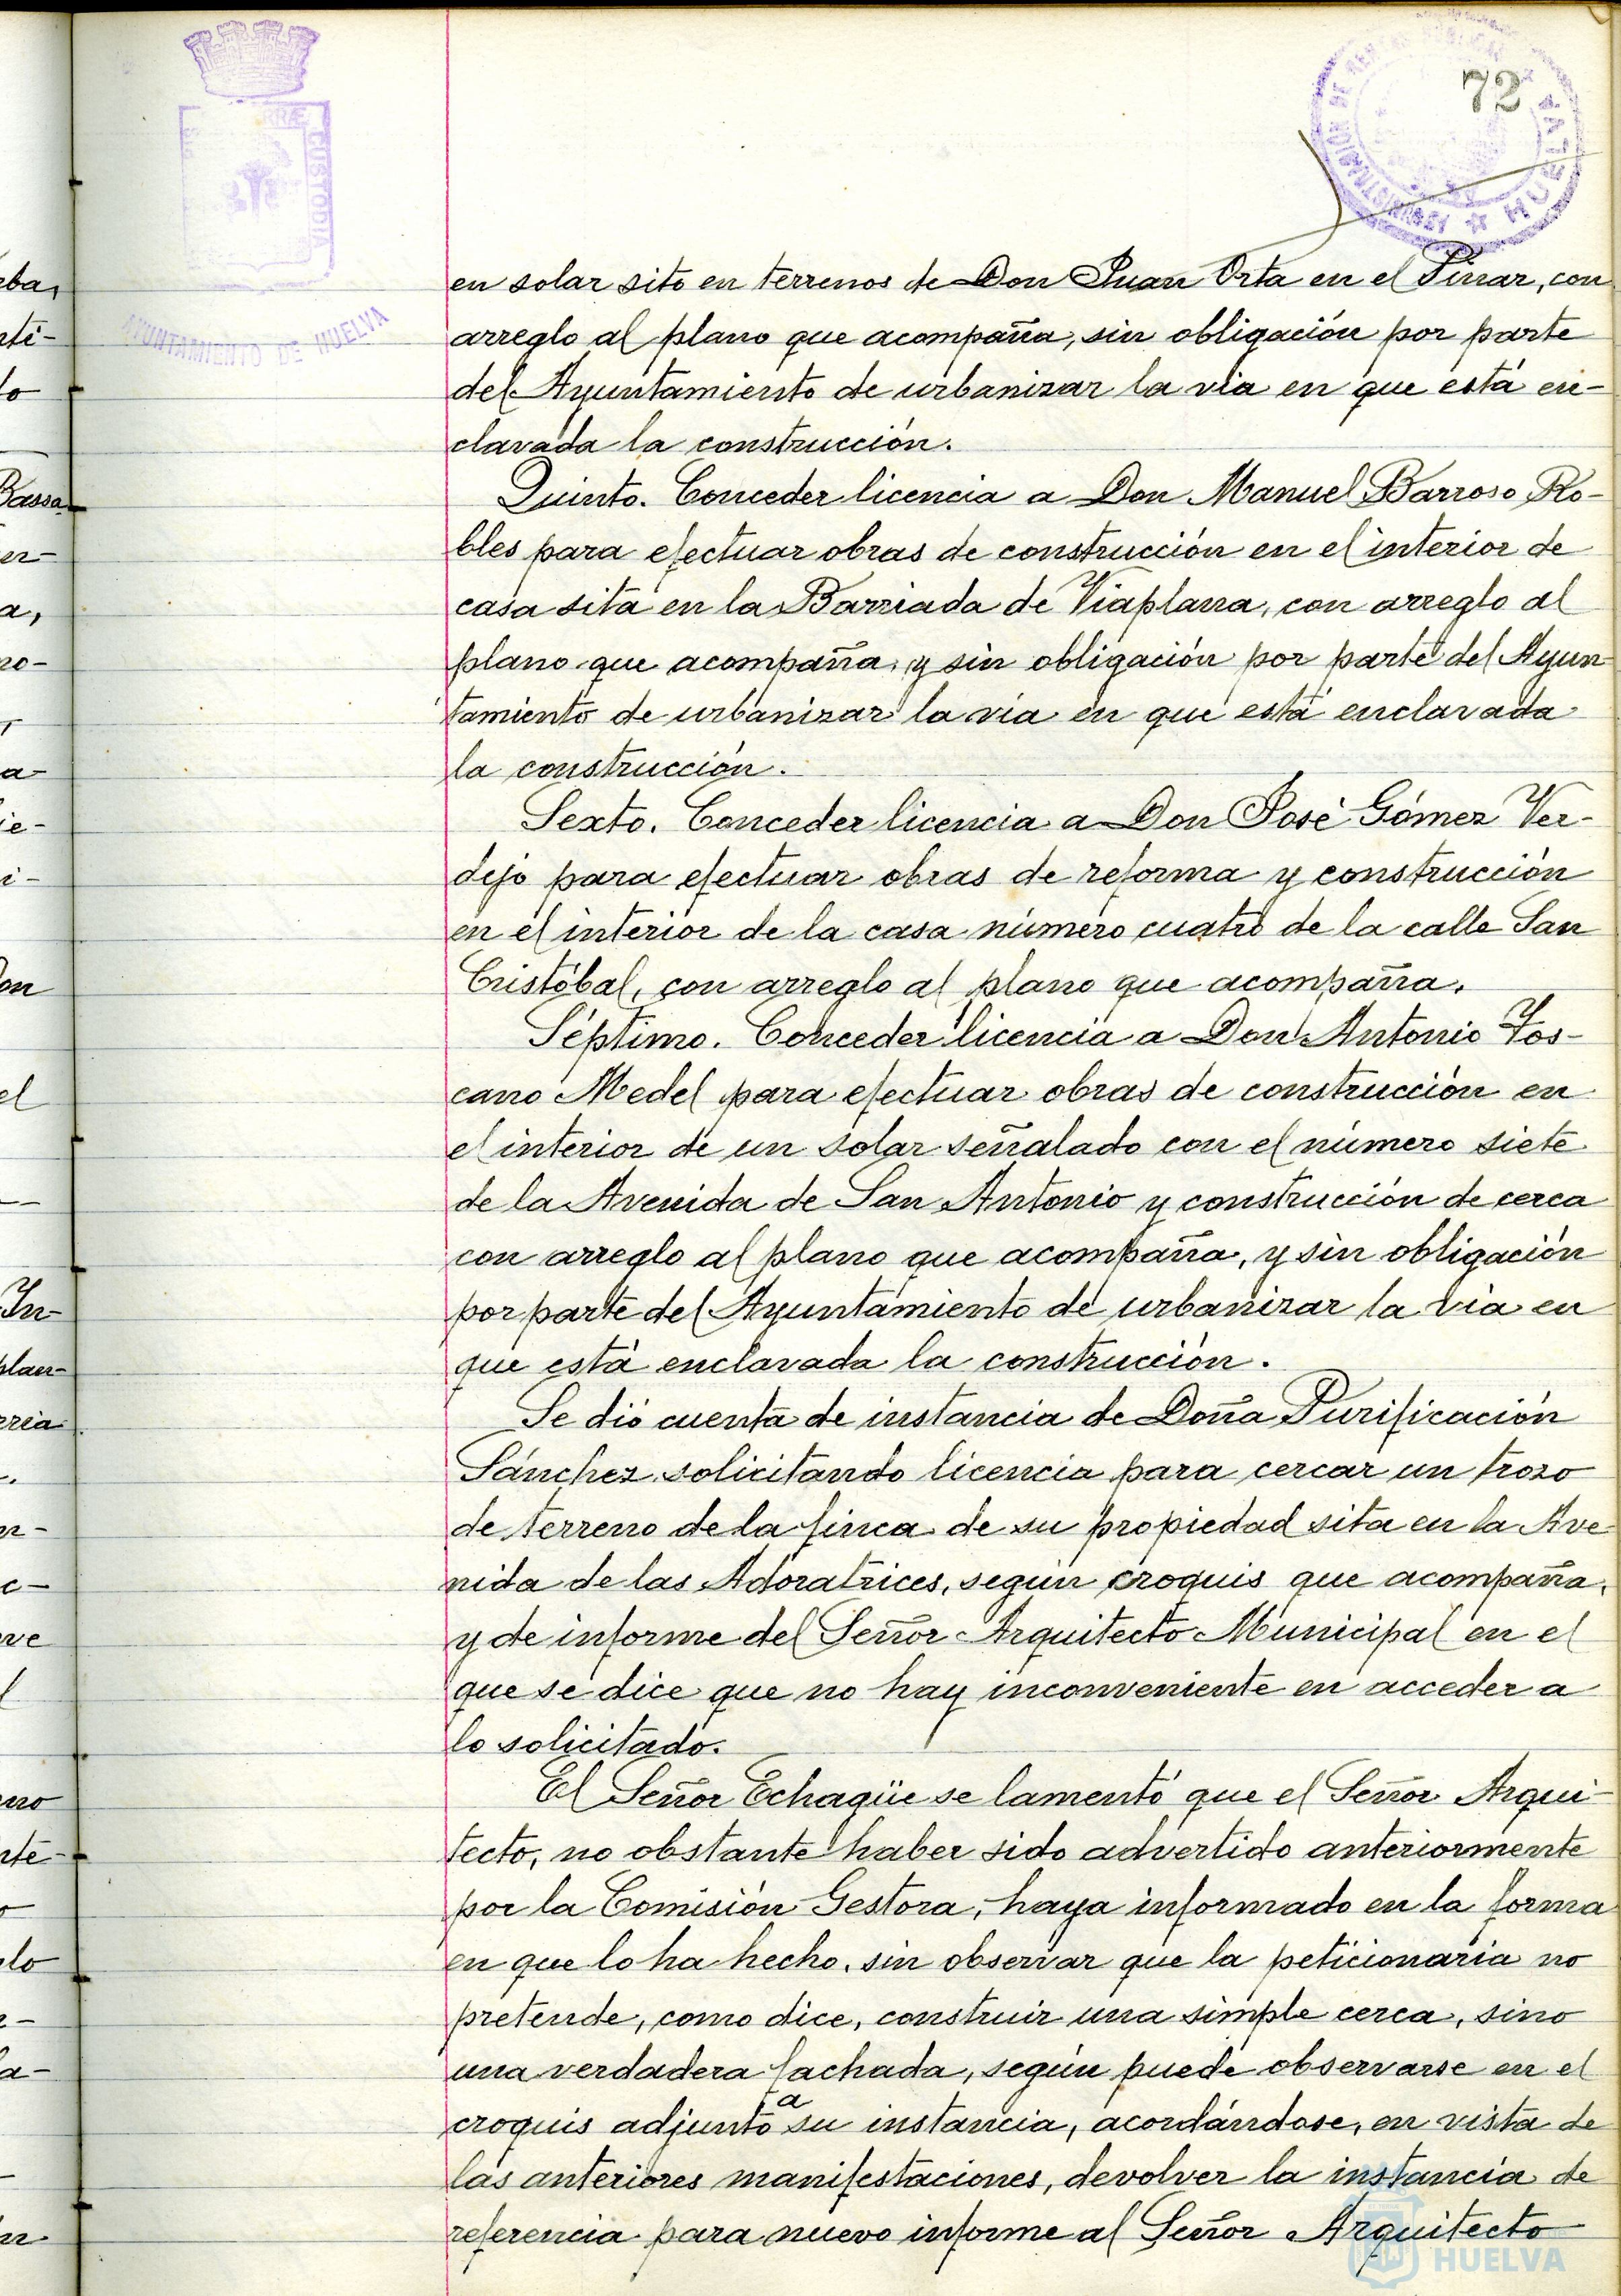 72
CUSTODIA
AYUNTAMIENTO DE HUELVA
HUELVA
en solar sito en terrenos de Don Juan Orta en el Pinar, con
arreglo al plano que acompaña, sin obligación por parte
del Ayuntamiento de urbanizar la vía en que está en-
clavada la construcción.
Quinto. Conceder licencia a Don Manuel Barroso Ro-
bles para efectuar obras de construcción en el interior de
casa sita en la Barriada de Viaplana, con arreglo al
plano que acompaña, y sin obligación por parte del Ayun
tamiento de urbanizar la vía en que está enclavada
la construcción.
Sexto. Conceder licencia a Don José Gómez Ver-
dejo para efectuar obras de reforma y construcción
en el interior de la casa número cuatro de la calle San
Cristóbal, con arreglo al plano que acompaña.
Séptimo. Conceder licencia a Don Antonio Tos-
cano Medel para efectuar obras de construcción en
el interior de un solar señalado con el número siete
de la Avenida de San Antonio y construcción de cerca
con arreglo al plano que acompaña, y sin obligación
por parte del Ayuntamiento de urbanizar la vía en
que está enclavada la construcción.
Se dió cuenta de instancia de Doña Purificación
Sánchez solicitando licencia para cercar un trozo
de terreno de la finca de su propiedad sita en la Ave
nida de las Adoratrices, según croquis que acompaña,
y de informe del Señor Arquitecto Municipal en el
que se dice que no hay inconveniente en acceder a
lo solicitado.
El Señor Echagüe se lamentó que el Señor Arqui-
tecto, no obstante haber sido advertido anteriormente
por la Comisión Gestora, haya informado en la forma
en que lo ha hecho, sin observar que la peticionaria no
pretende, como dice, construir una simple cerca, sino
una verdadera fachada, según puede observarse en el
croquis adjunto a su instancia, acordándose, en vista de
las anteriores manifestaciones, devolver la instancia de
referencia para nuevo informe al Señor Arquitecto
HUELVA